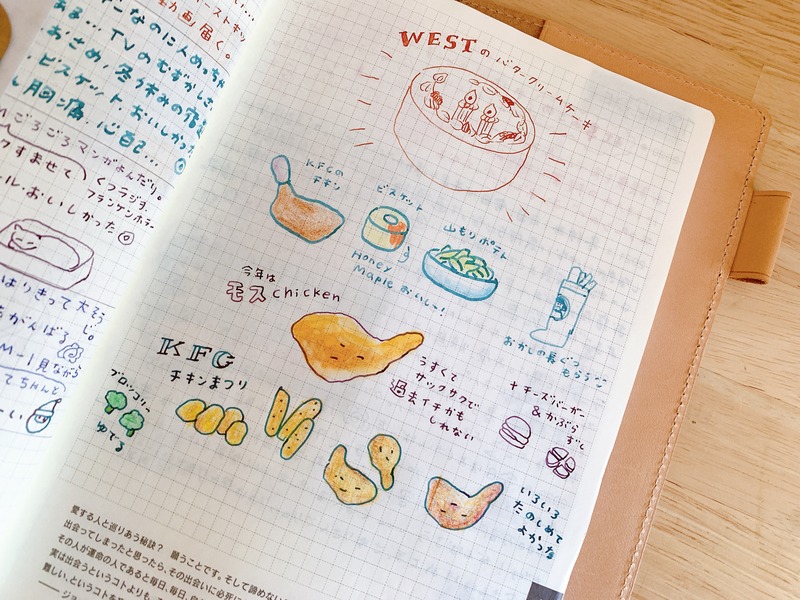 動画届く。
ある… TVのむずかしさ
おさめ、冬休みの宿
ビスケットおいしかった
胸痛、心配…
ゴロゴロマンガよんだり。
クすませて くつラジオ、
フランケンホラー
ール・おいしかった
はりきって大そうじ。
がんばる
M-1見ながら
てちゃんと
WESTのバタークリームケーキ
KFCの
チキン
ビスケット
Honey
Mapleおいし〜!
山もりポテト
おかしの長ぐつ
もらう
今年は
モスchicken
うすくて
サックサクで
過去イチかも
しれない
KFC
チキンまつり
ブロッコリー
ゆでる
+チーズバーガー
&かぶら
ずし
いろいろ
たのしめて
よかった
愛する人と巡りあう秘訣? 願うことです。そして諦めない
出会ってしまったと思ったら、その出会いに必死に
その人が運命の人であると毎日、毎日、
実は出会うというコトよりも、
難しい、というコトを
── ジョ